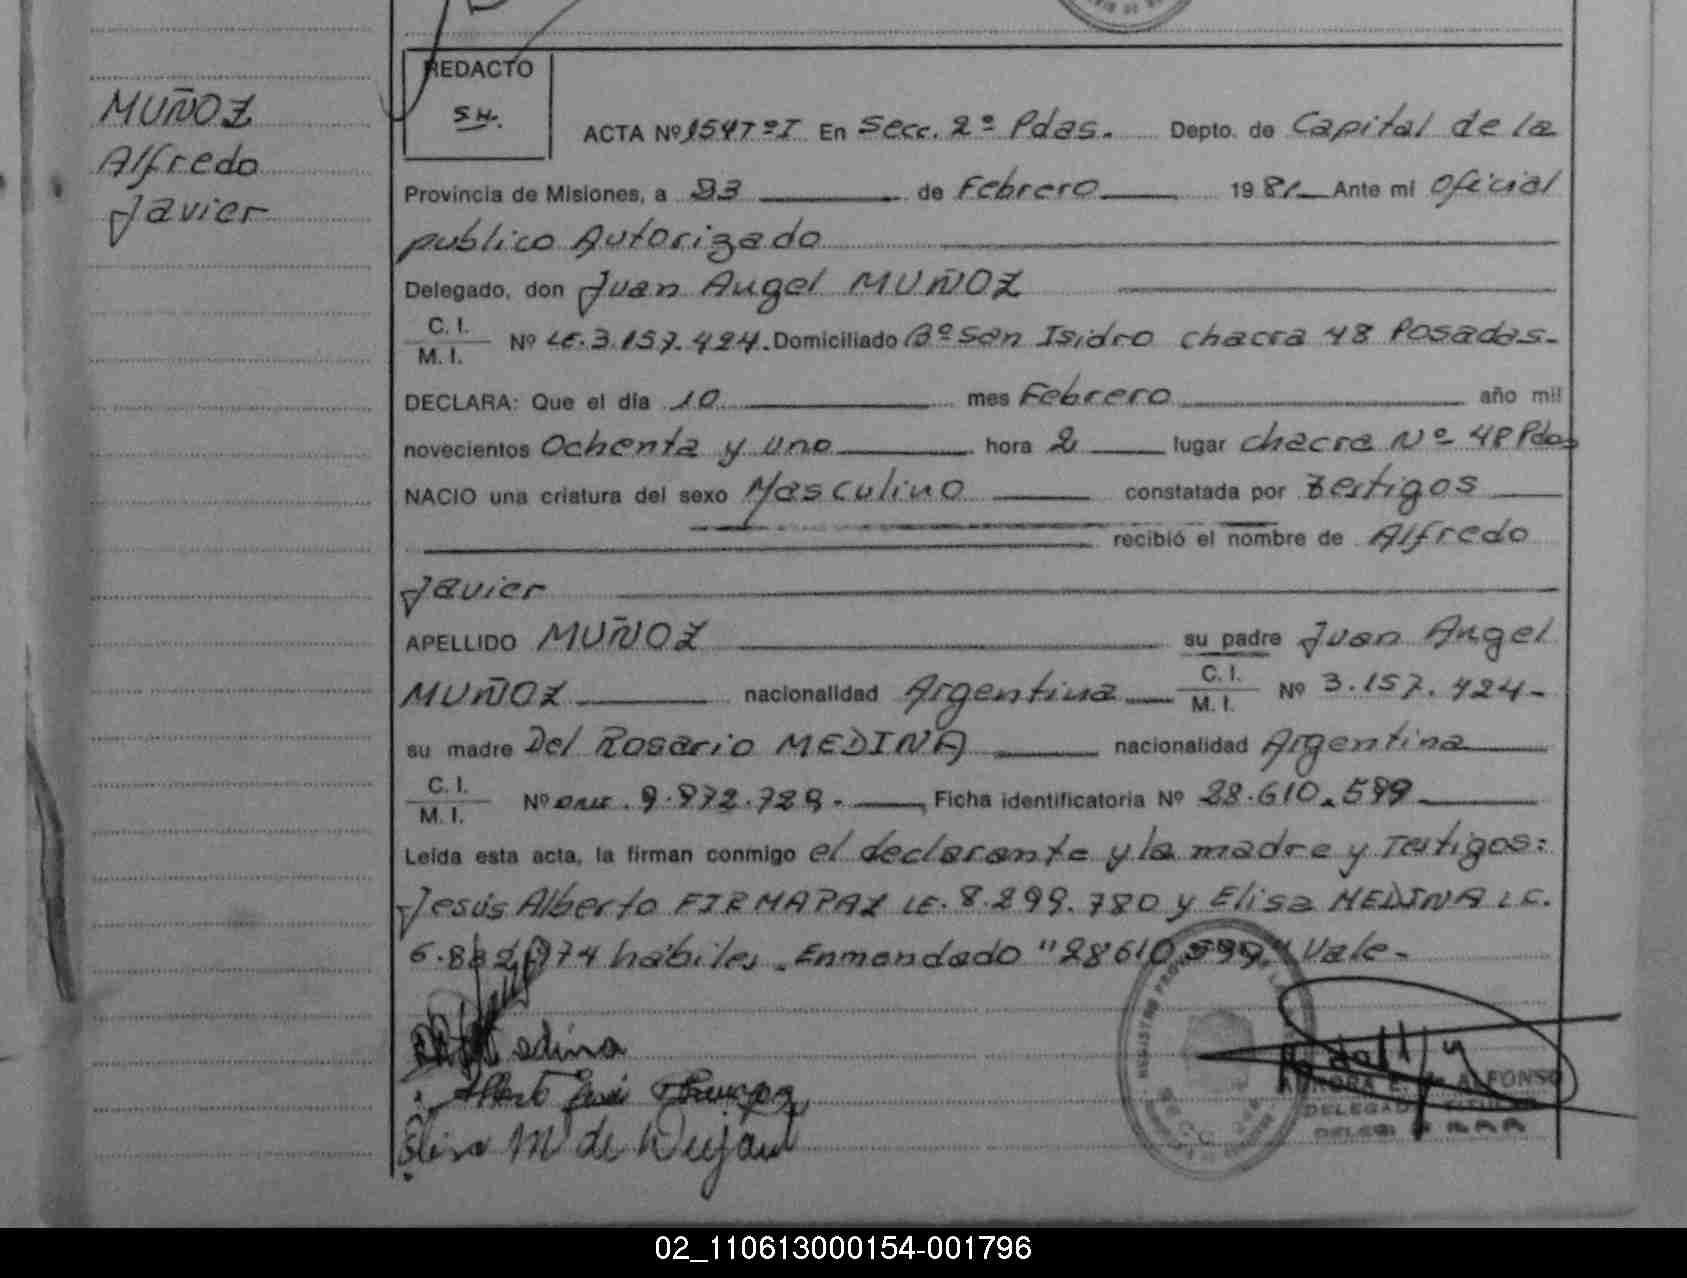 MUÑOZ
Alfredo
Javier
REDACTO
S.H.
ACTA Nº 154Tº I En Secc. 2º Pdas. Depto. de Capital de la
Provincia de Misiones, a 23 de Febrero 1981 Ante mi Oficial
publico Autorizado
Delegado, don Juan Angel MUÑOZ
C. I.
M. I. Nº LE. 3.157.424. Domiciliado Bº San Isidro chacra 48 Posadas.
DECLARA: Que el día 10 mes Febrero año mil
novecientos Ochenta y uno hora 2 lugar chacra Nº 48 Pdas
NACIO una criatura del sexo Masculino constatada por testigos
recibió el nombre de Alfredo
Javier
APELLIDO MUÑOZ su padre Juan Angel
MUÑOZ nacionalidad Argentina C. I.
M. I. Nº 3.157.424-
su madre Del Rosario MEDINA nacionalidad Argentina
C. I.
M. I. Nº 9.972.729. Ficha identificatoria Nº 28.610.599
Leída esta acta, la firman conmigo el declarante y la madre y Testigos:
Jesús Alberto FIRMAPAZ LE. 8.299.780 y Elisa MEDINA LC.
hábiles. Enmendado "28610599" Vale-
AURORA E. ALFONSO
DELEGADA TITULAR
Elisa M de
02_110613000154-001796